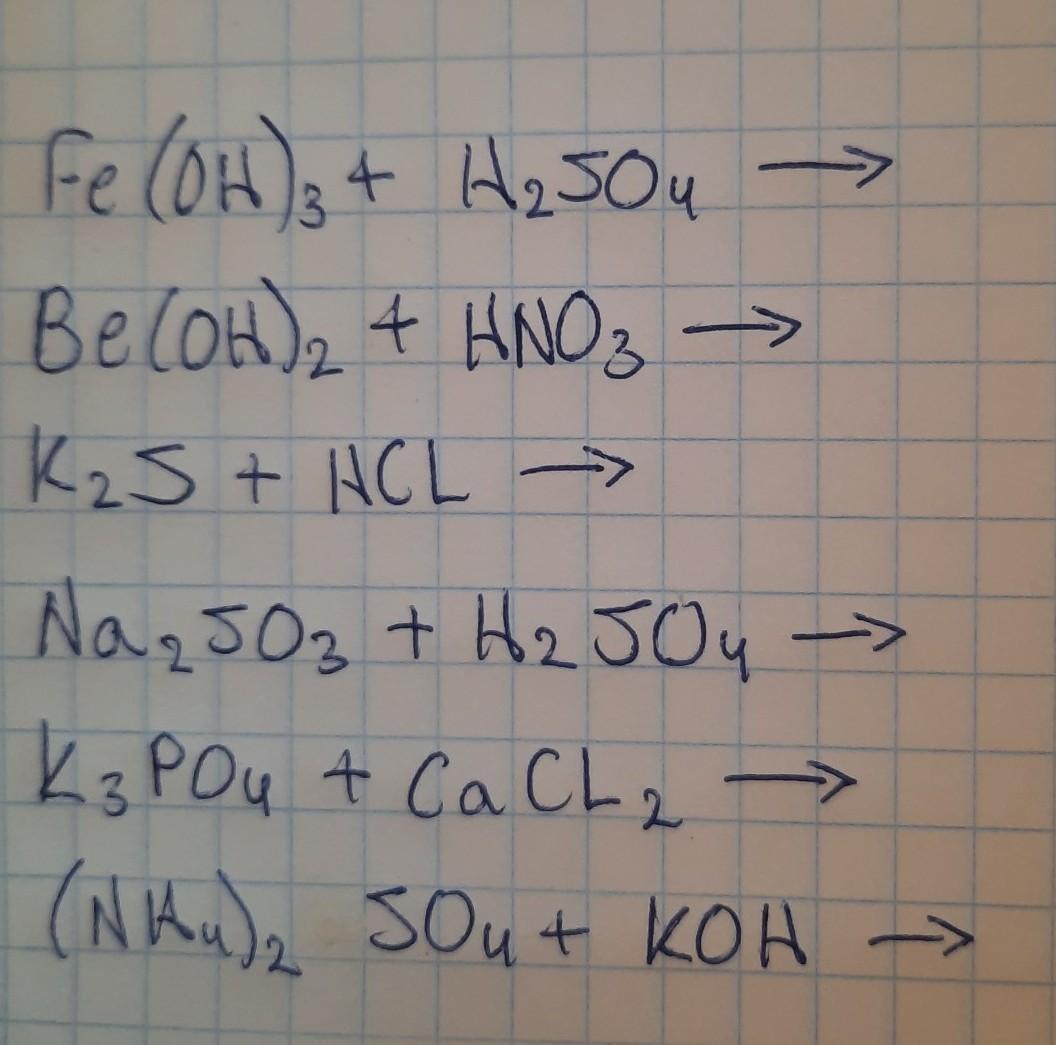 Fe(OH)₃ + H₂SO₄ →
Be(OH)₂ + HNO₃ →
K₂S + HCL →
Na₂SO₃ + H₂SO₄ →
K₃PO₄ + CaCL₂ →
(NH₄)₂ SO₄ + KOH →